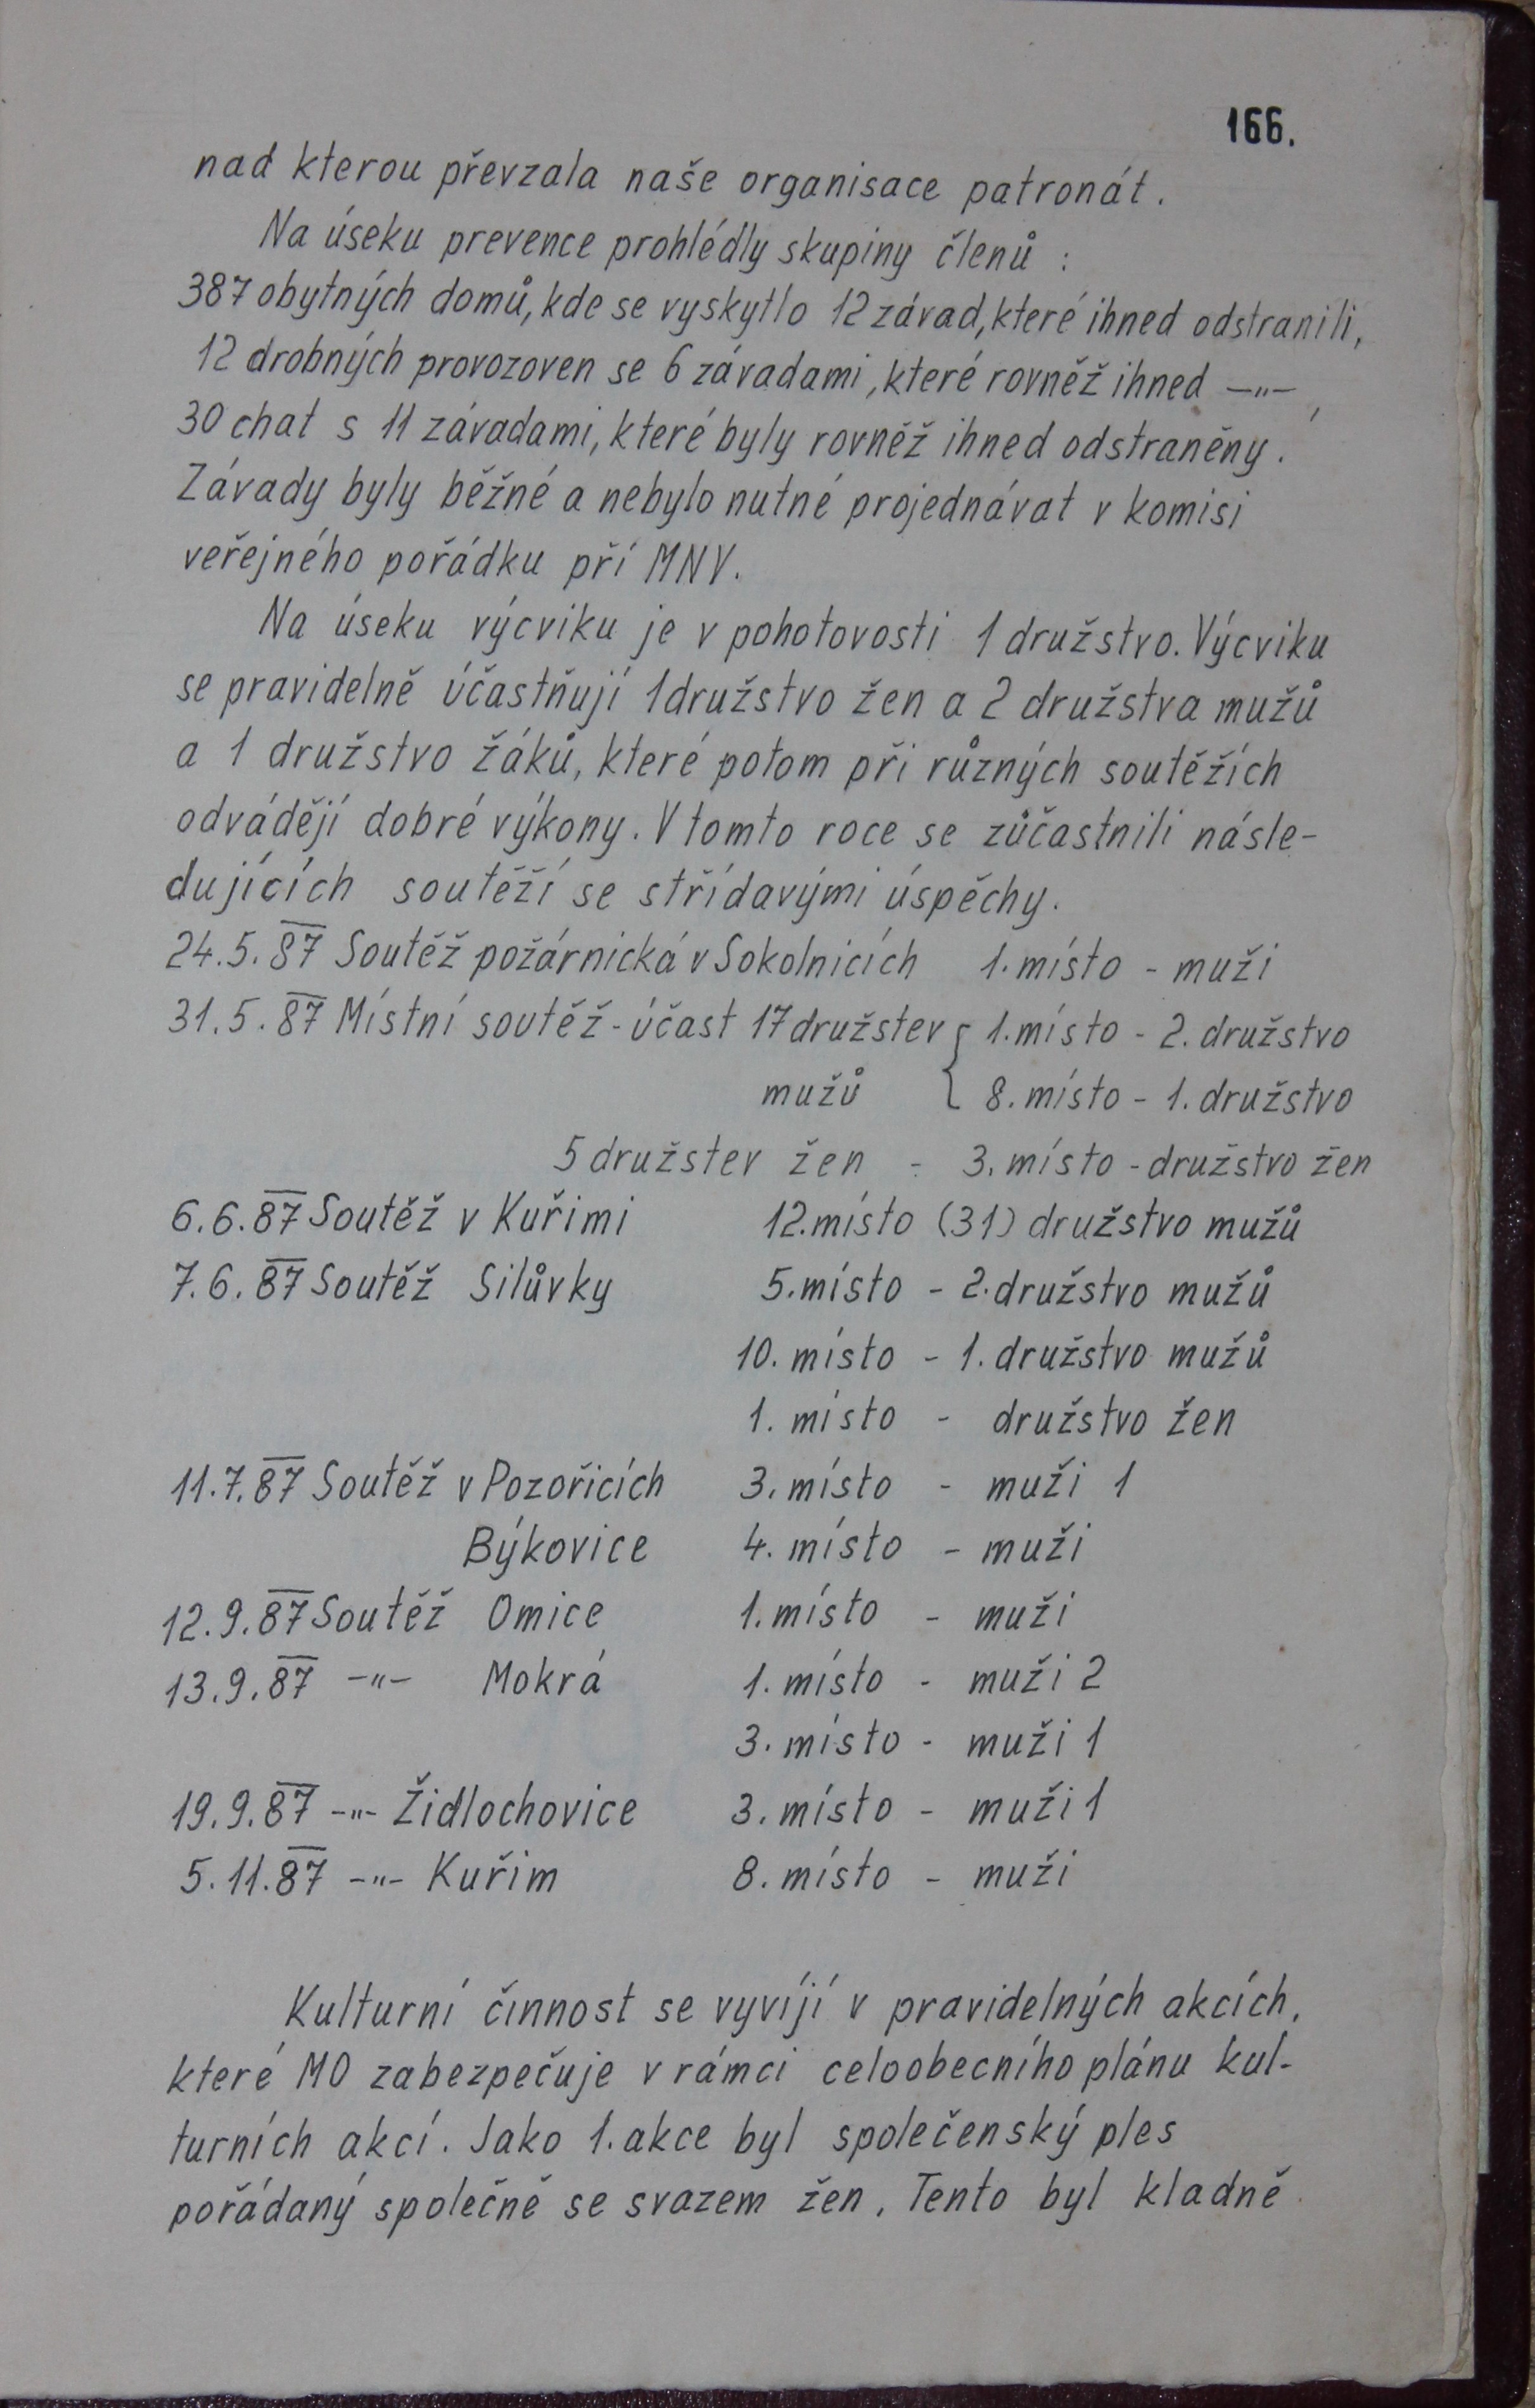 166.
nad kterou převzala naše organisace patronát.
Na úseku prevence prohlédly skupiny členů :
387 obytných domů, kde se vyskytlo 12 závad, které ihned odstranili,
12 drobných provozoven se 6 závadami, které rovněž ihned —"—,
30 chat s 11 závadami, které byly rovněž ihned odstraněny.
Závady byly běžné a nebylo nutné projednávat v komisi
veřejného pořádku pří MNV.
Na úseku výcviku je v pohotovosti 1 družstvo. Výcviku
se pravidelně účastňují 1 družstvo žen a 2 družstva mužů
a 1 družstvo žáků, které potom při různých soutěžích
odvádějí dobré výkony. V tomto roce se zůčastnili násle-
dujících soutěží se střídavými úspěchy.
24.5.87 Soutěž požárnická v Sokolnicích 1. místo - muži
31.5.87 Místní soutěž - účast 17 družstev { 1. místo - 2. družstvo
mužů { 8. místo - 1. družstvo
5 družstev žen - 3. místo - družstvo žen
6.6.87 Soutěž v Kuřimi 12. místo (31) družstvo mužů
7.6.87 Soutěž Silůvky 5. místo - 2. družstvo mužů
10. místo - 1. družstvo mužů
1. místo - družstvo žen
11.7.87 Soutěž v Pozořicích 3. místo - muži 1
Býkovice 4. místo - muži
12.9.87 Soutěž Omice 1. místo - muži
13.9.87 —"— Mokrá 1. místo - muži 2
3. místo - muži 1
19.9.87 —"— Židlochovice 3. místo - muži 1
5.11.87 —"— Kuřim 8. místo - muži
Kulturní činnost se vyvíjí v pravidelných akcích,
které MO zabezpečuje v rámci celoobecního plánu kul-
turních akcí. Jako 1. akce byl společenský ples
pořádaný společně se svazem žen. Tento byl kladně